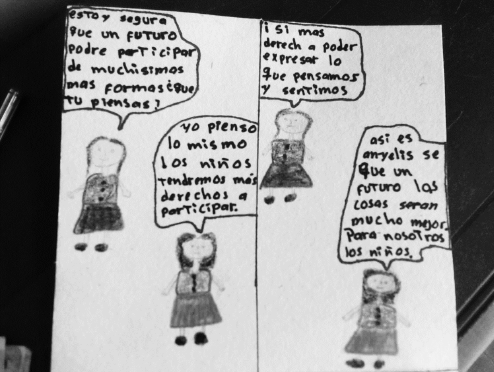 estoy segura
que un futuro
podre participar
de muchisimas
mas formas ¿que
tu piensas?
yo pienso
lo mismo
los niños
tendremos más
derechos a
participar.
¡ si mas
derech a poder
expresar lo
que pensamos
y sentimos
asi es
anyelis se
que un
futuro las
cosas seran
mucho mejor
para nosotros
los niños.